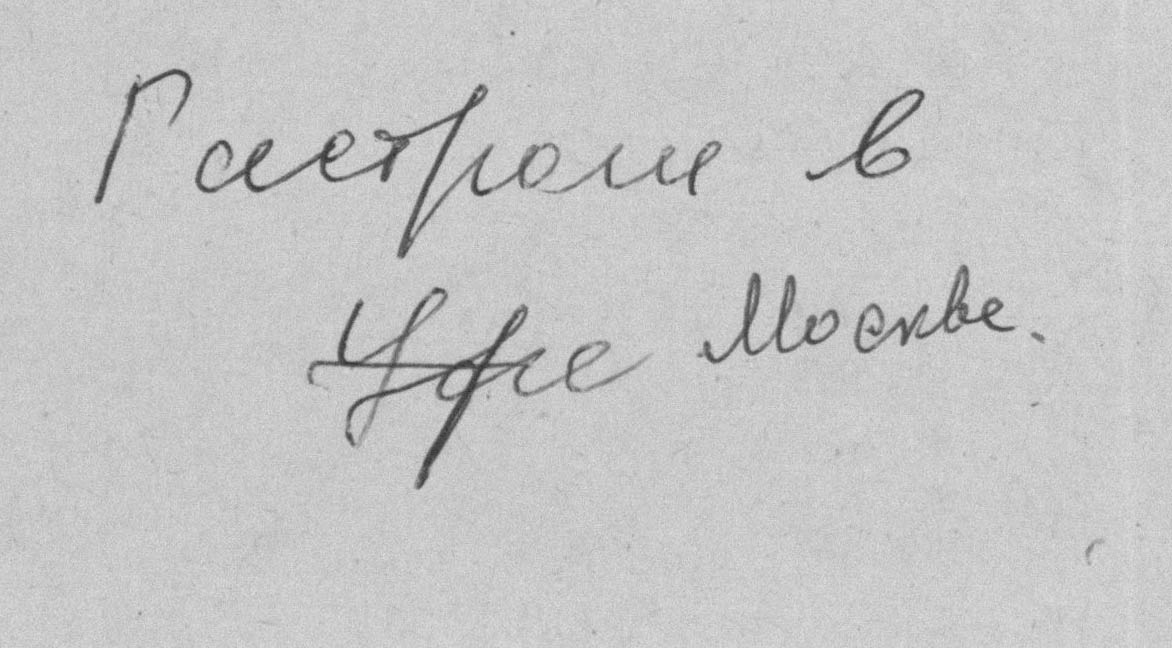 Гастроли в
Уфе Москве.